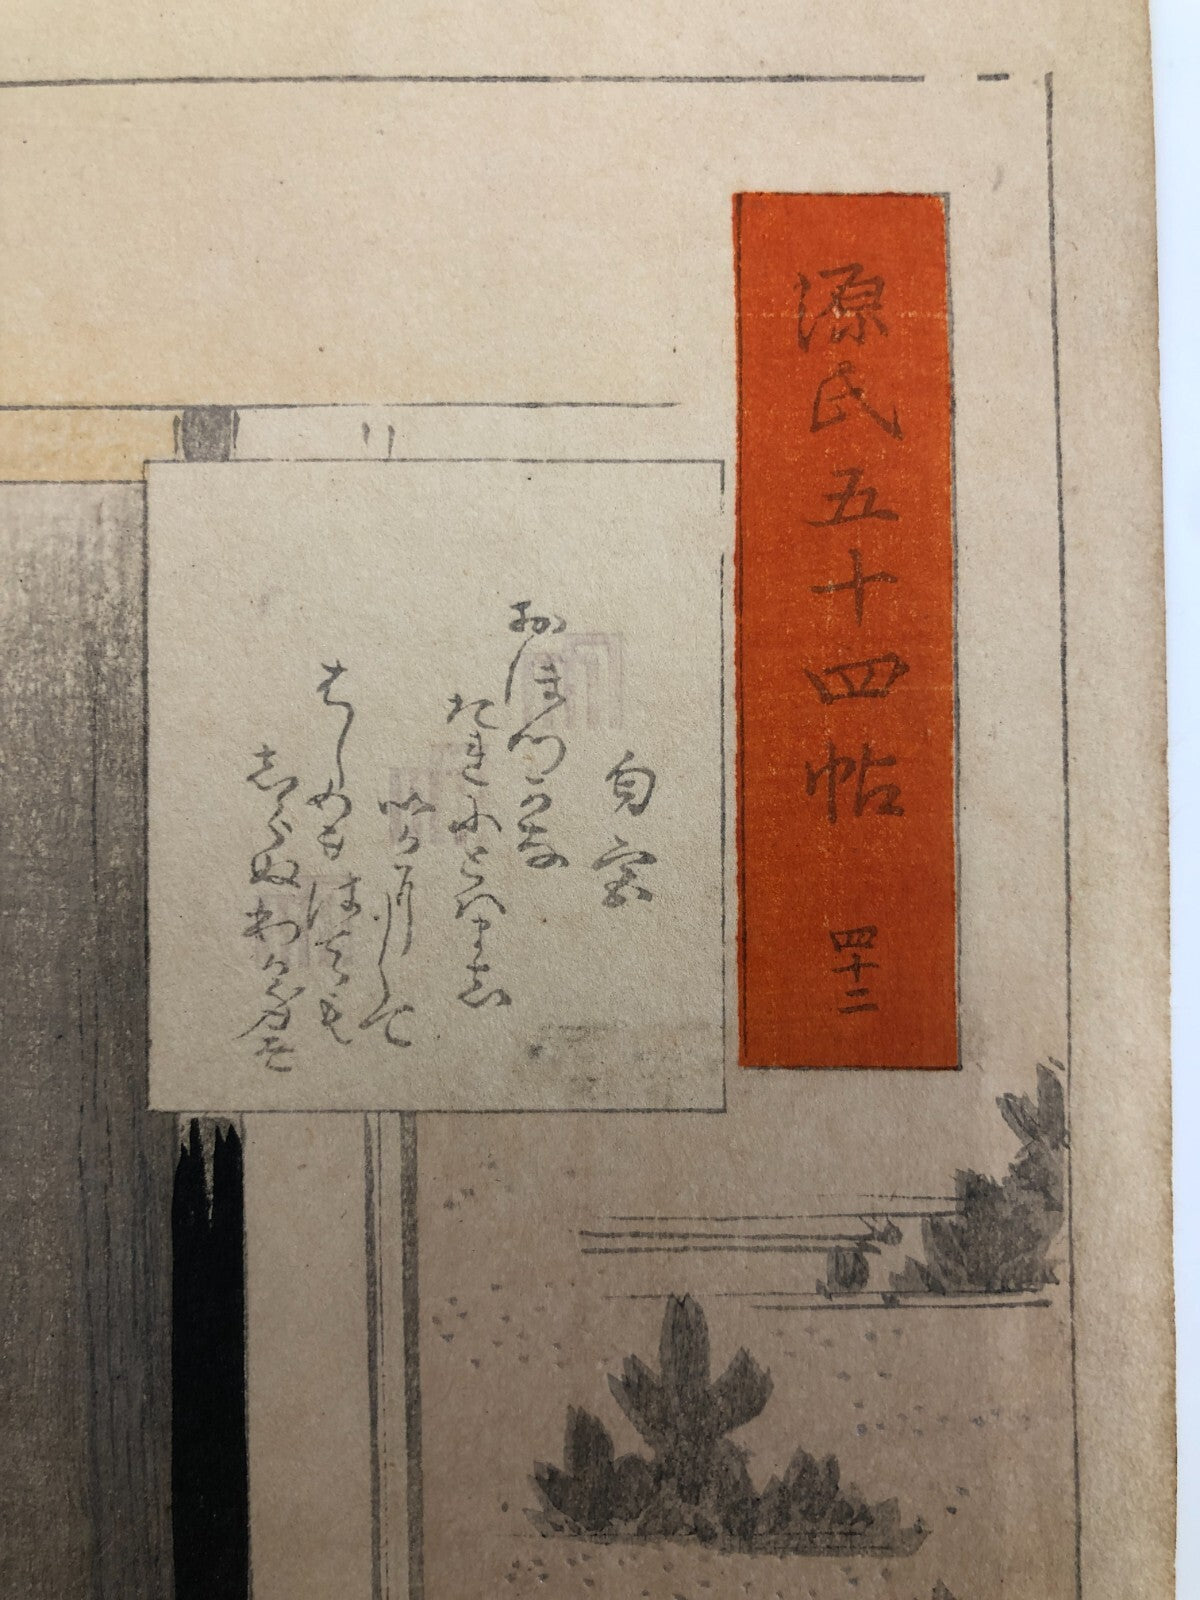 源氏五十四帖 四十二
匂宮
おほつかな
たれにとはまし
いかにして
はしめもはても
しらぬわか身そ